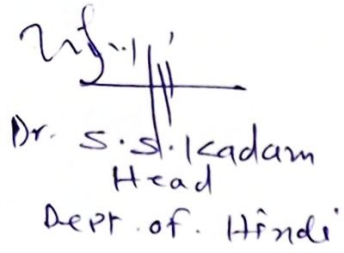 Dr. S.S. Kadam
Head
Dept. of. Hindi